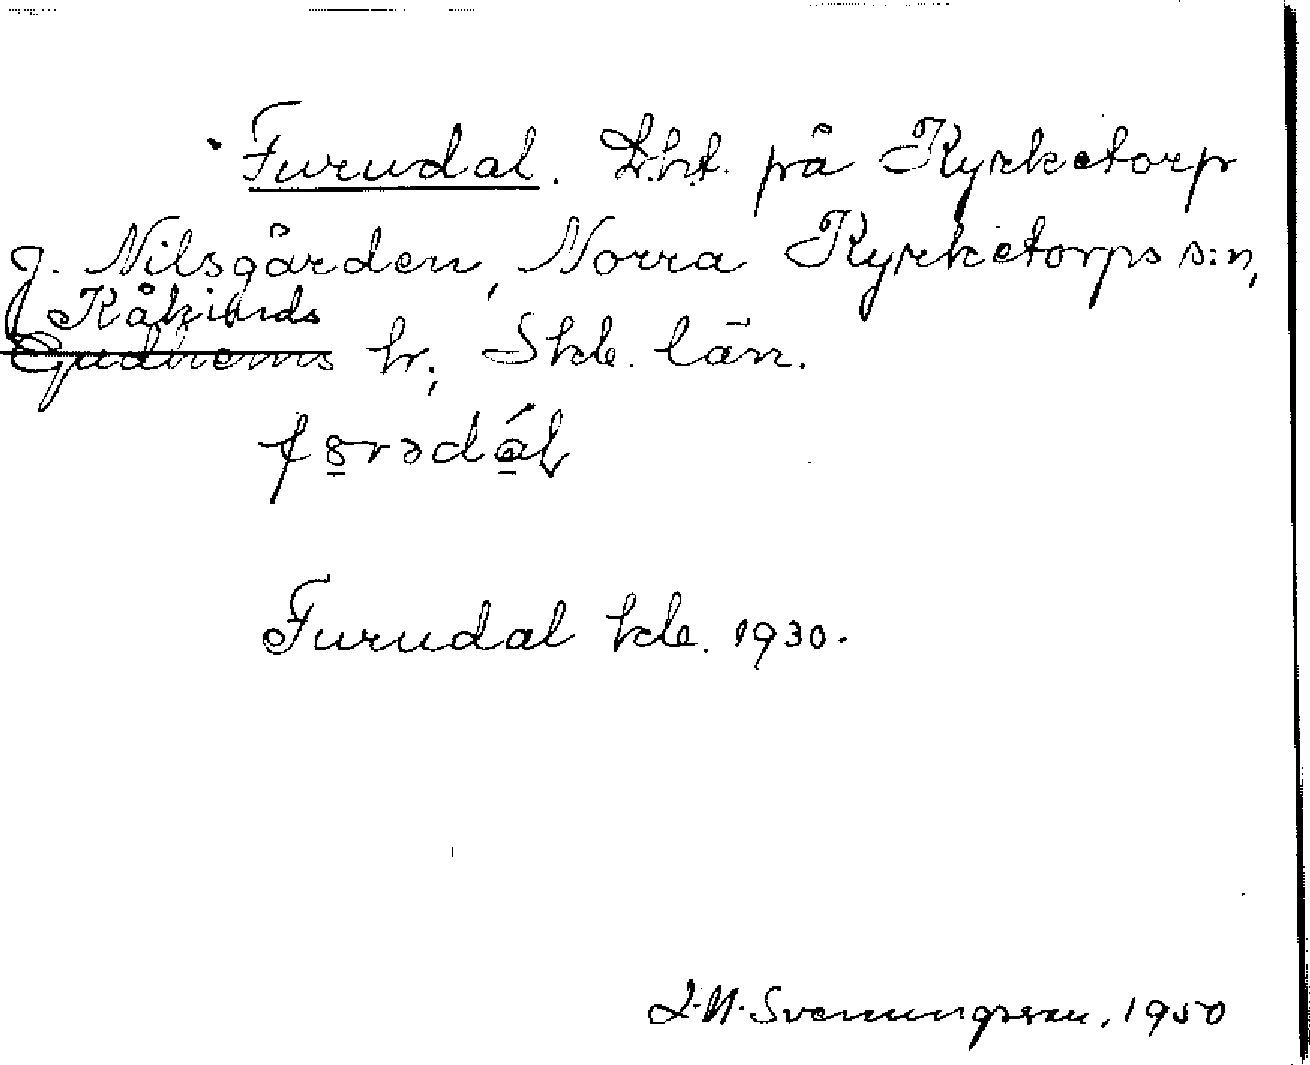 Furudal. Lht. på Kyrketorp
g. Nilsgården, Norra Kyrketorps s:n,
Kåkinds
Gudhems hr, Skb. län.
Furudal kb. 1930.
L-N. Svenungsson, 1950